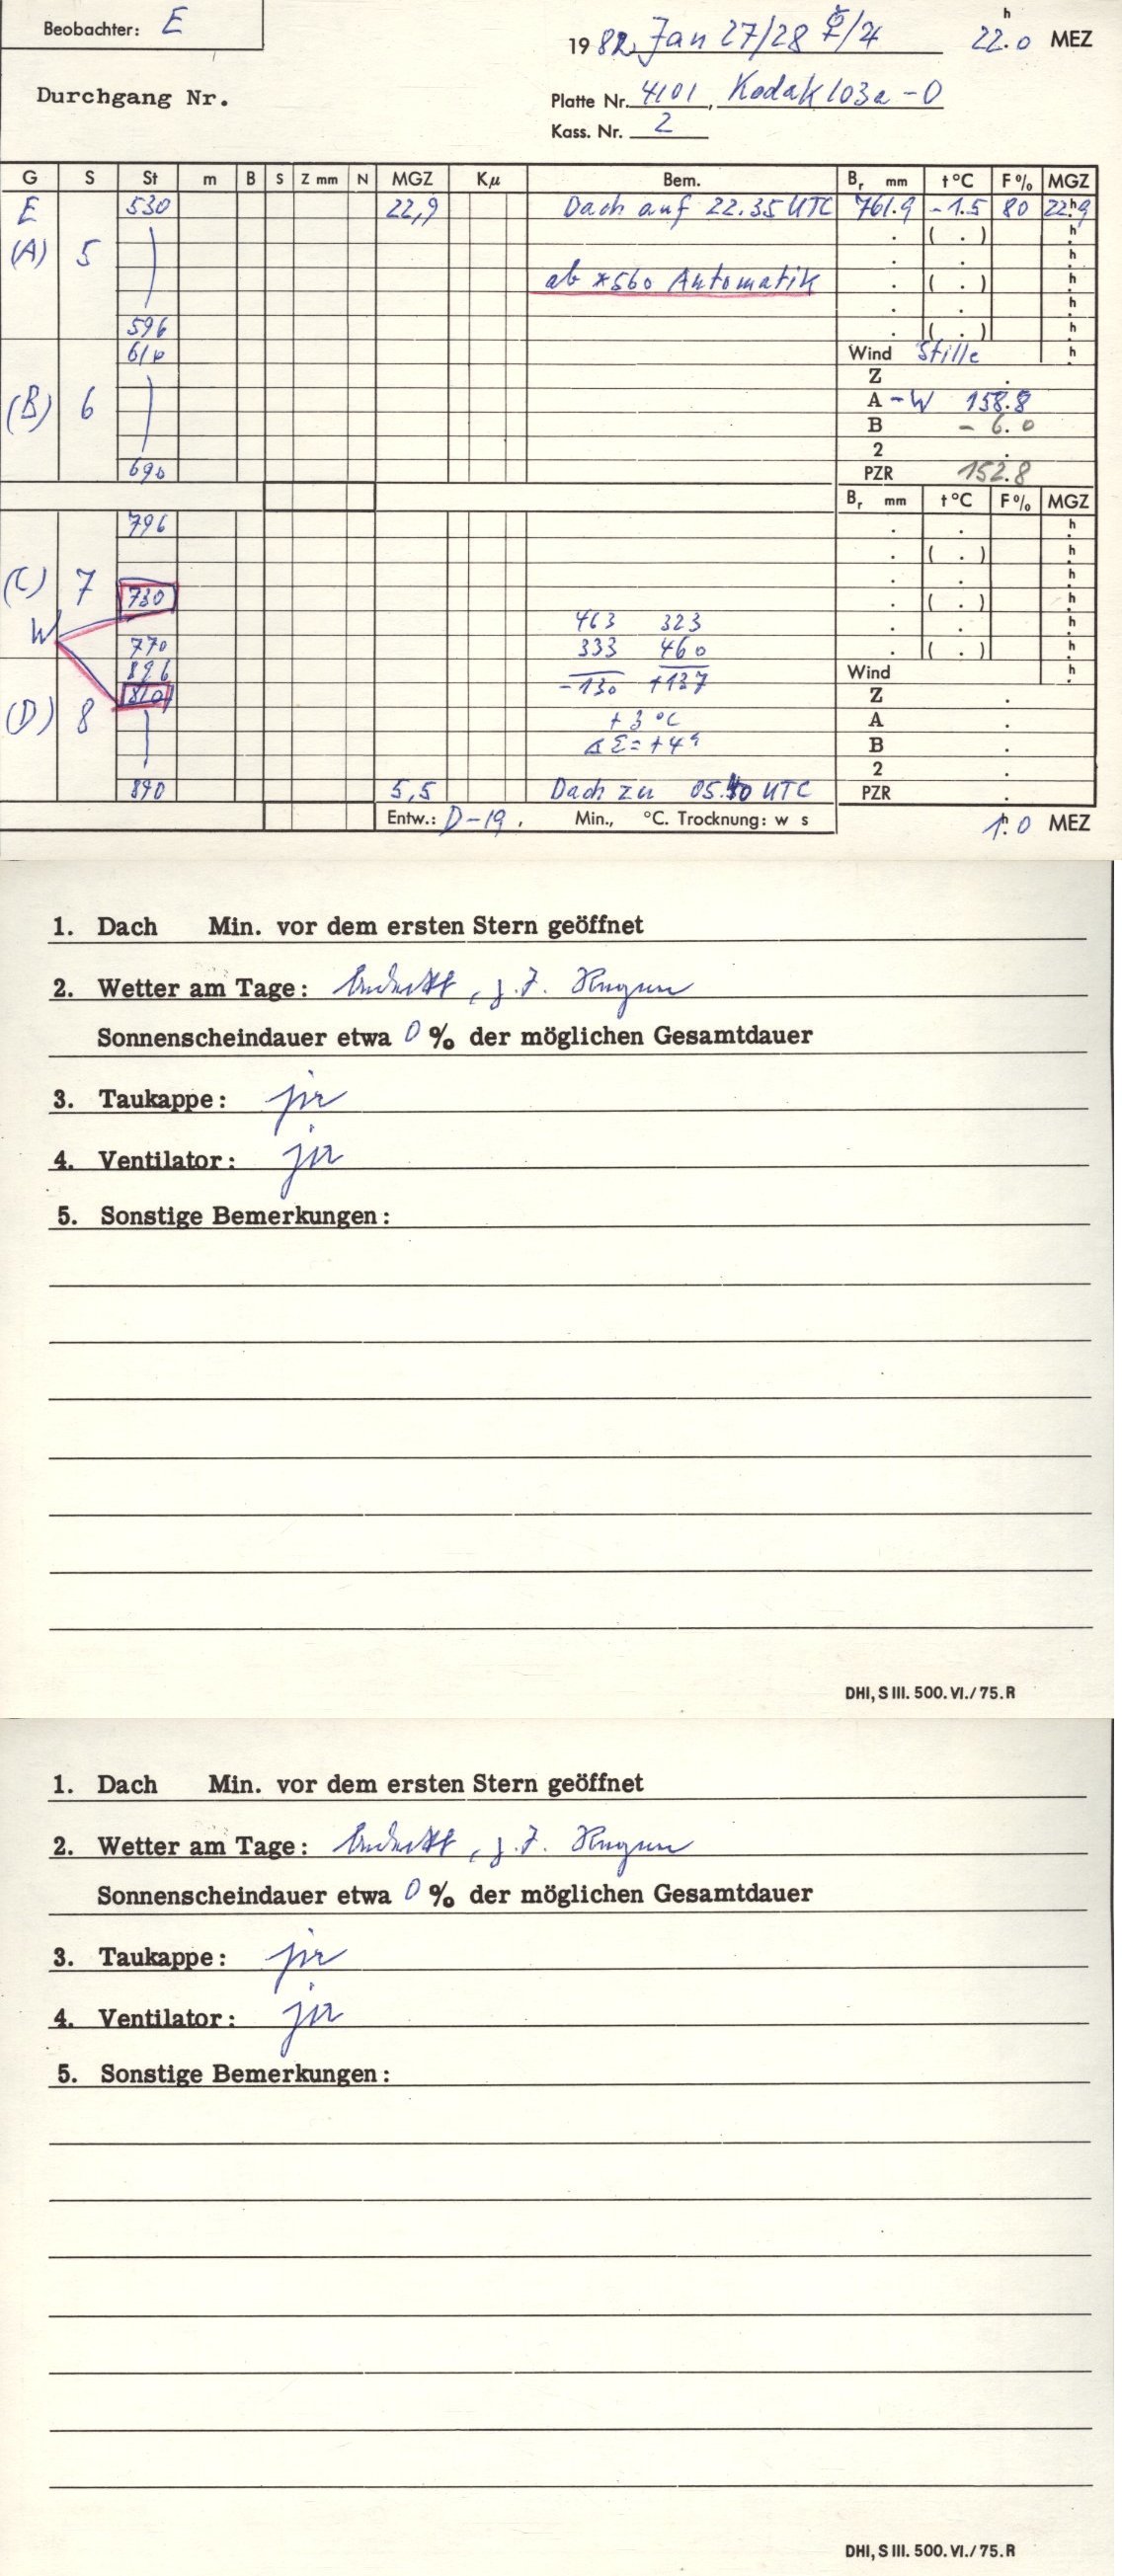 Beobachter: E
1982 Jan 27/28 ☿/♃ 22.0 h MEZ
Durchgang Nr.
Platte Nr. 4101, Kodak 103a-O
Kass. Nr. 2
G S St m B S Z mm N MGZ Kµ Bem. Br mm t °C F% MGZ
E 530 22,9 Dach auf 22.35 UTC 761.9 -1.5 80 22h9
. ( . ) h
(A) 5 . . h
ab *560 Automatik . ( . ) h
. . h
596 . ( . ) h
610 Wind Stille h
Z .
(B) 6 A - W 158.8
B - 6.0
2 .
690 PZR 152.8
Br mm t °C F% MGZ
796 . . h
. ( . ) h
(C) 7 . . h
730 . ( . ) h
W 463 323 . . h
770 333 460 . ( . ) h
896 Wind h
810 -130 +137 Z .
(D) 8 +3 °C A .
ΔΣ= +4 B .
2 .
890 5,5 Dach zu 05.40 UTC PZR .
Entw.: D-19, Min., °C. Trocknung: w s 1h.0 MEZ
1. Dach Min. vor dem ersten Stern geöffnet
2. Wetter am Tage: bedeckt, z.T. Regen
Sonnenscheindauer etwa 0 % der möglichen Gesamtdauer
3. Taukappe: ja
4. Ventilator: ja
5. Sonstige Bemerkungen:
DHI, S III. 500. VI./75. R
1. Dach Min. vor dem ersten Stern geöffnet
2. Wetter am Tage: bedeckt, z.T. Regen
Sonnenscheindauer etwa 0 % der möglichen Gesamtdauer
3. Taukappe: ja
4. Ventilator: ja
5. Sonstige Bemerkungen:
DHI, S III. 500. VI./75. R